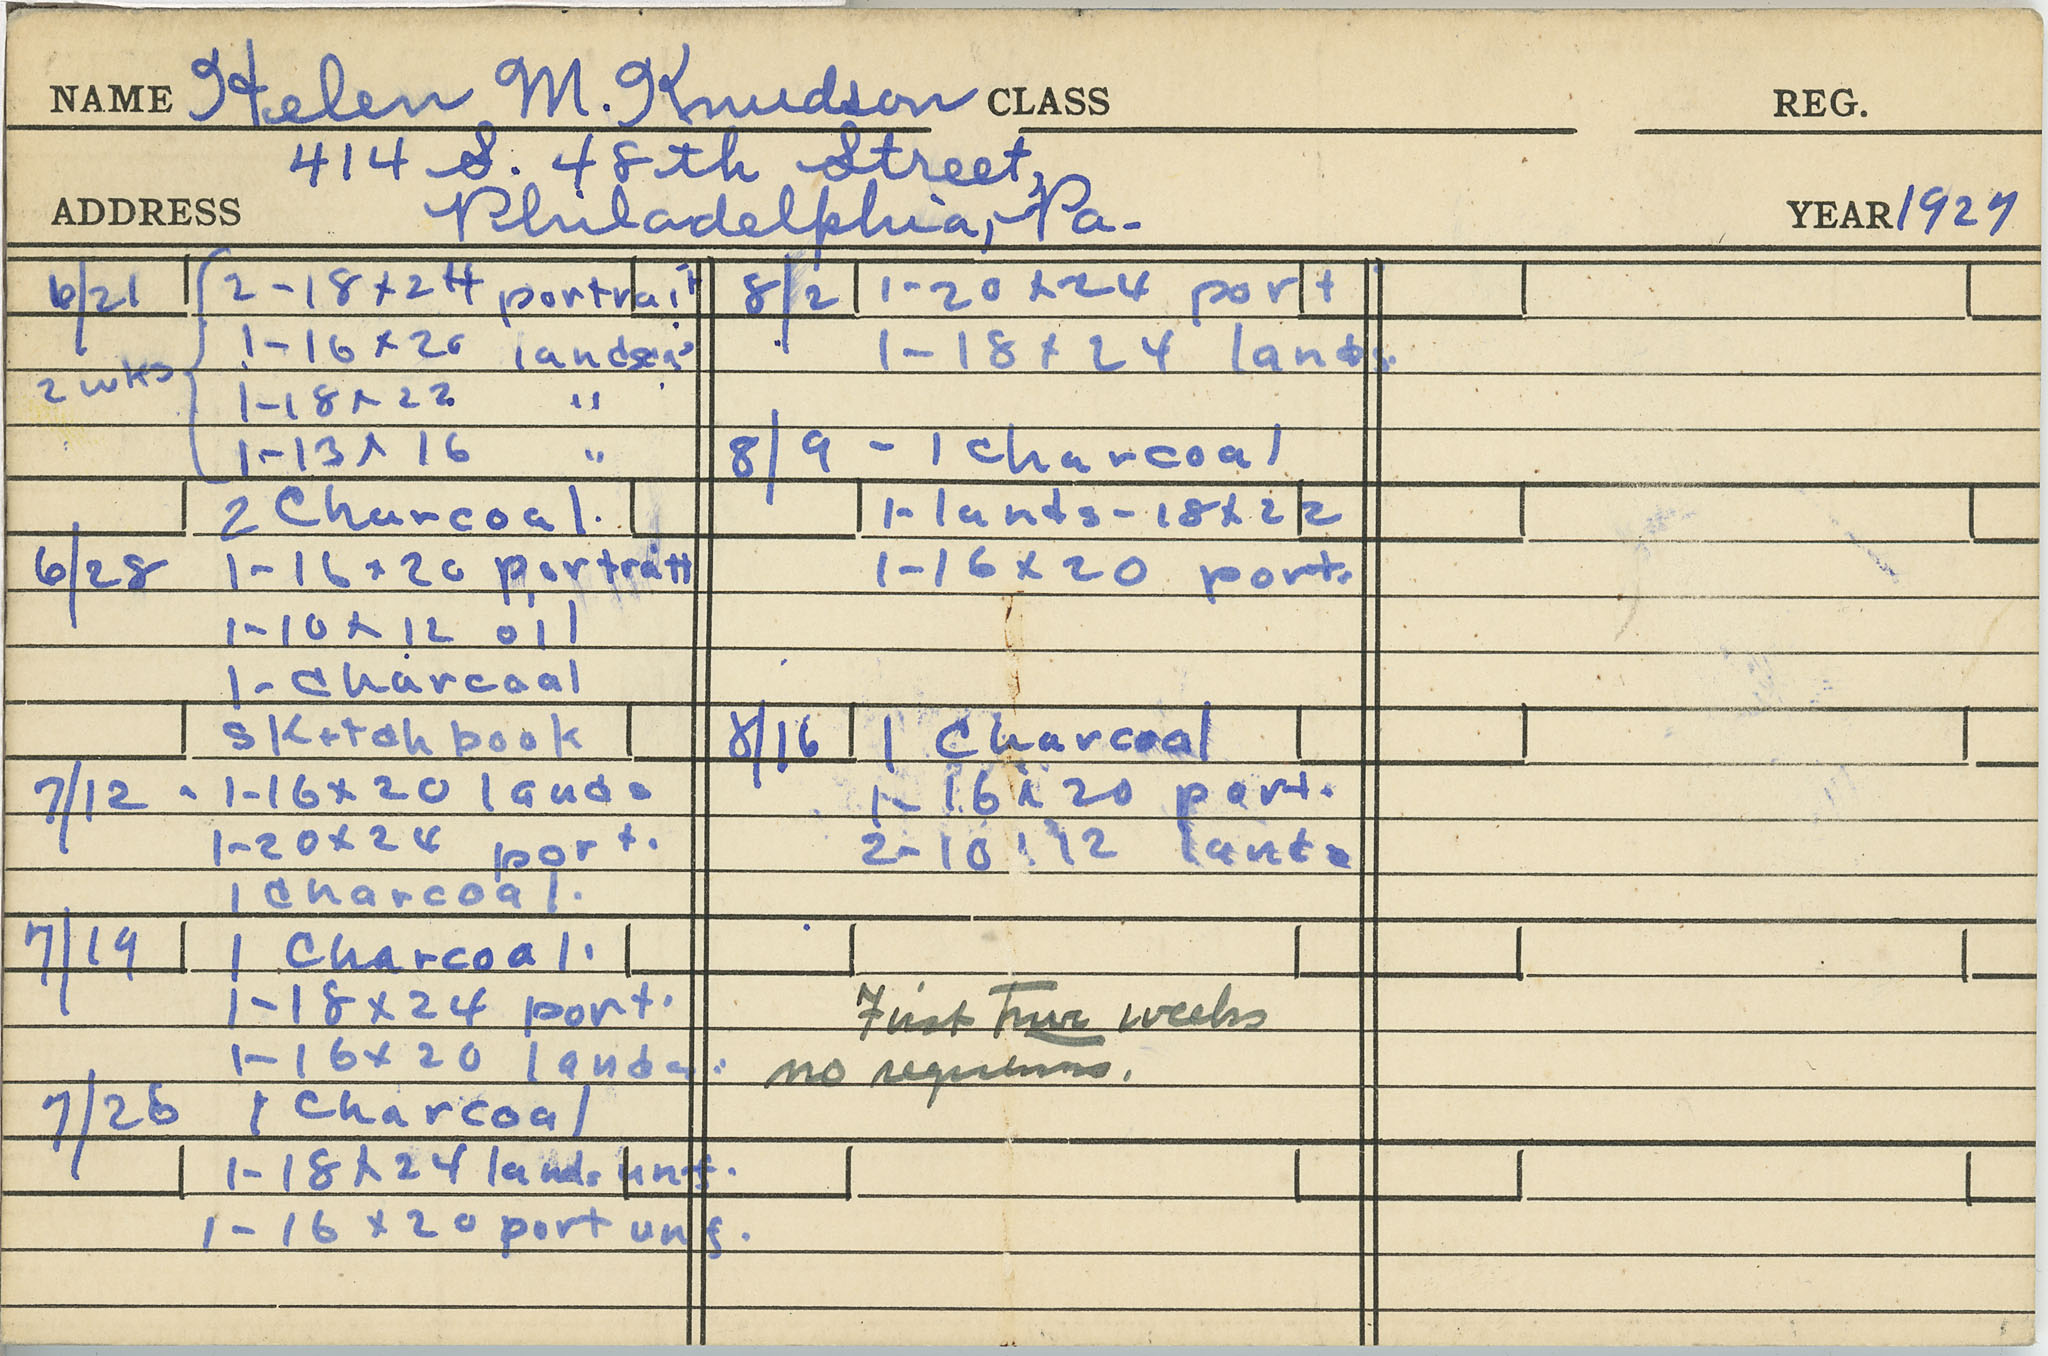 NAME Helen M. Knudson CLASS REG.
414 S. 48th Street,
ADDRESS Philadelphia, Pa. YEAR 1927
6/21 2-18x24 portrait
1-16x20 landsc.
2 wks 1-18x22 "
1-13x16 "
2 Charcoal.
6/28 1-16x20 portrait
1-10x12 oil
1-charcoal
sketch book
7/12 - 1-16x20 lands
1-20x24 port.
1 charcoal.
7/19 1 Charcoal.
1-18x24 port.
1-16x20 lands.
7/26 1 Charcoal
1-18x24 lands unf.
1-16x20 port unf.
8/2 1-20x24 port
1-18x24 lands.
8/9 - 1 charcoal
1-lands-18x22
1-16x20 port.
8/16 1 Charcoal
1-16x20 port.
2-10x12 lands
First weeks
no